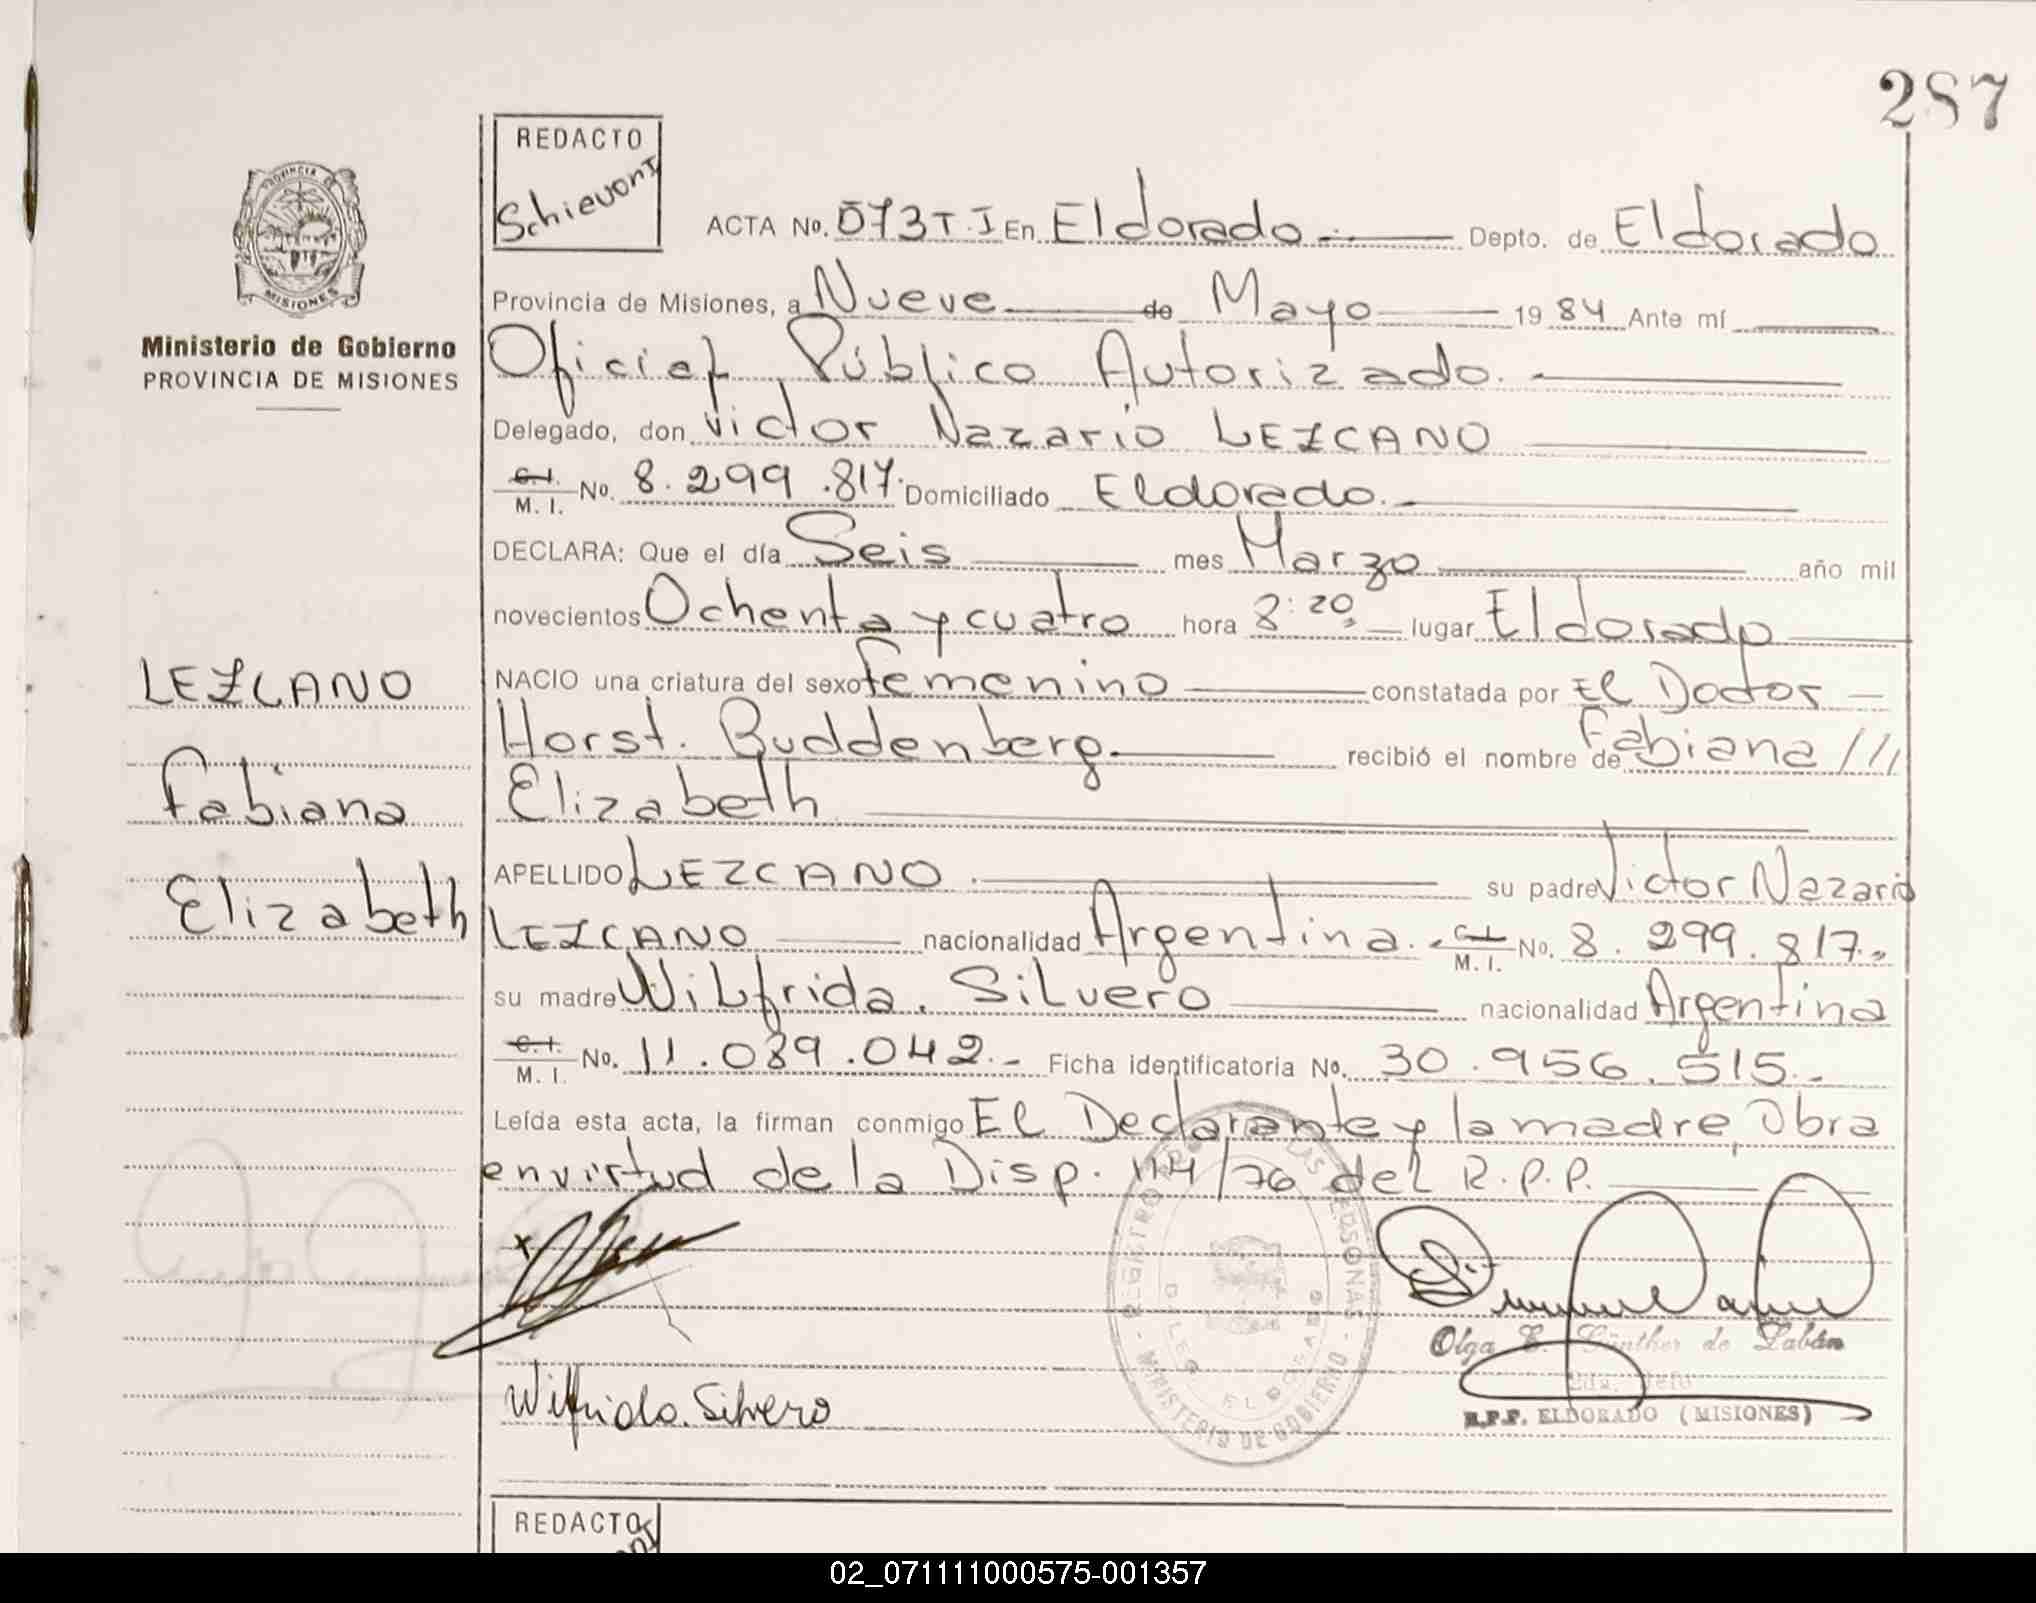 287
REDACTO
Schievoni
ACTA No. 073 T.I En Eldorado Depto. de Eldorado
Provincia de Misiones, a Nueve de Mayo 1984 Ante mí
Ministerio de Gobierno
PROVINCIA DE MISIONES
Oficial Público Autorizado.
Delegado, don Victor Nazario LEZCANO
C.I. M. I. No. 8.299.817. Domiciliado Eldorado.
DECLARA: Que el día Seis mes Marzo año mil
novecientos Ochenta y cuatro hora 8:20 lugar Eldorado
LEZCANO
NACIO una criatura del sexo femenino constatada por El Doctor
Horst. Buddenberg. recibió el nombre de Fabiana ///
Fabiana
Elizabeth
APELLIDO LEZCANO su padre Victor Nazario
Elizabeth
LEZCANO nacionalidad Argentina. C.I. M. I. No. 8.299.817.
su madre Wilfrida. Silvero nacionalidad Argentina
C.I. M. I. No. 11.039.042.- Ficha identificatoria No. 30.956.515.-
Leída esta acta, la firman conmigo El Declarante y la madre, Obra
en virtud de la Disp. 114/76 del R.P.P.
REGISTRO LAS PERSONAS
MINISTERIO DE GOBIERNO
Olga E. Günther de Labán
R.P.P. ELDORADO (MISIONES)
Wilfrida. Silvero
REDACTO
02_071111000575-001357